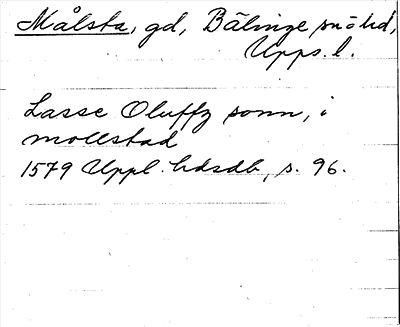 Målsta, gd, Bälinge sn o hd,
Upps. l.
Lasse Oluffz sonn, i
mollstad
1579 Uppl. hdsdb, s. 96.